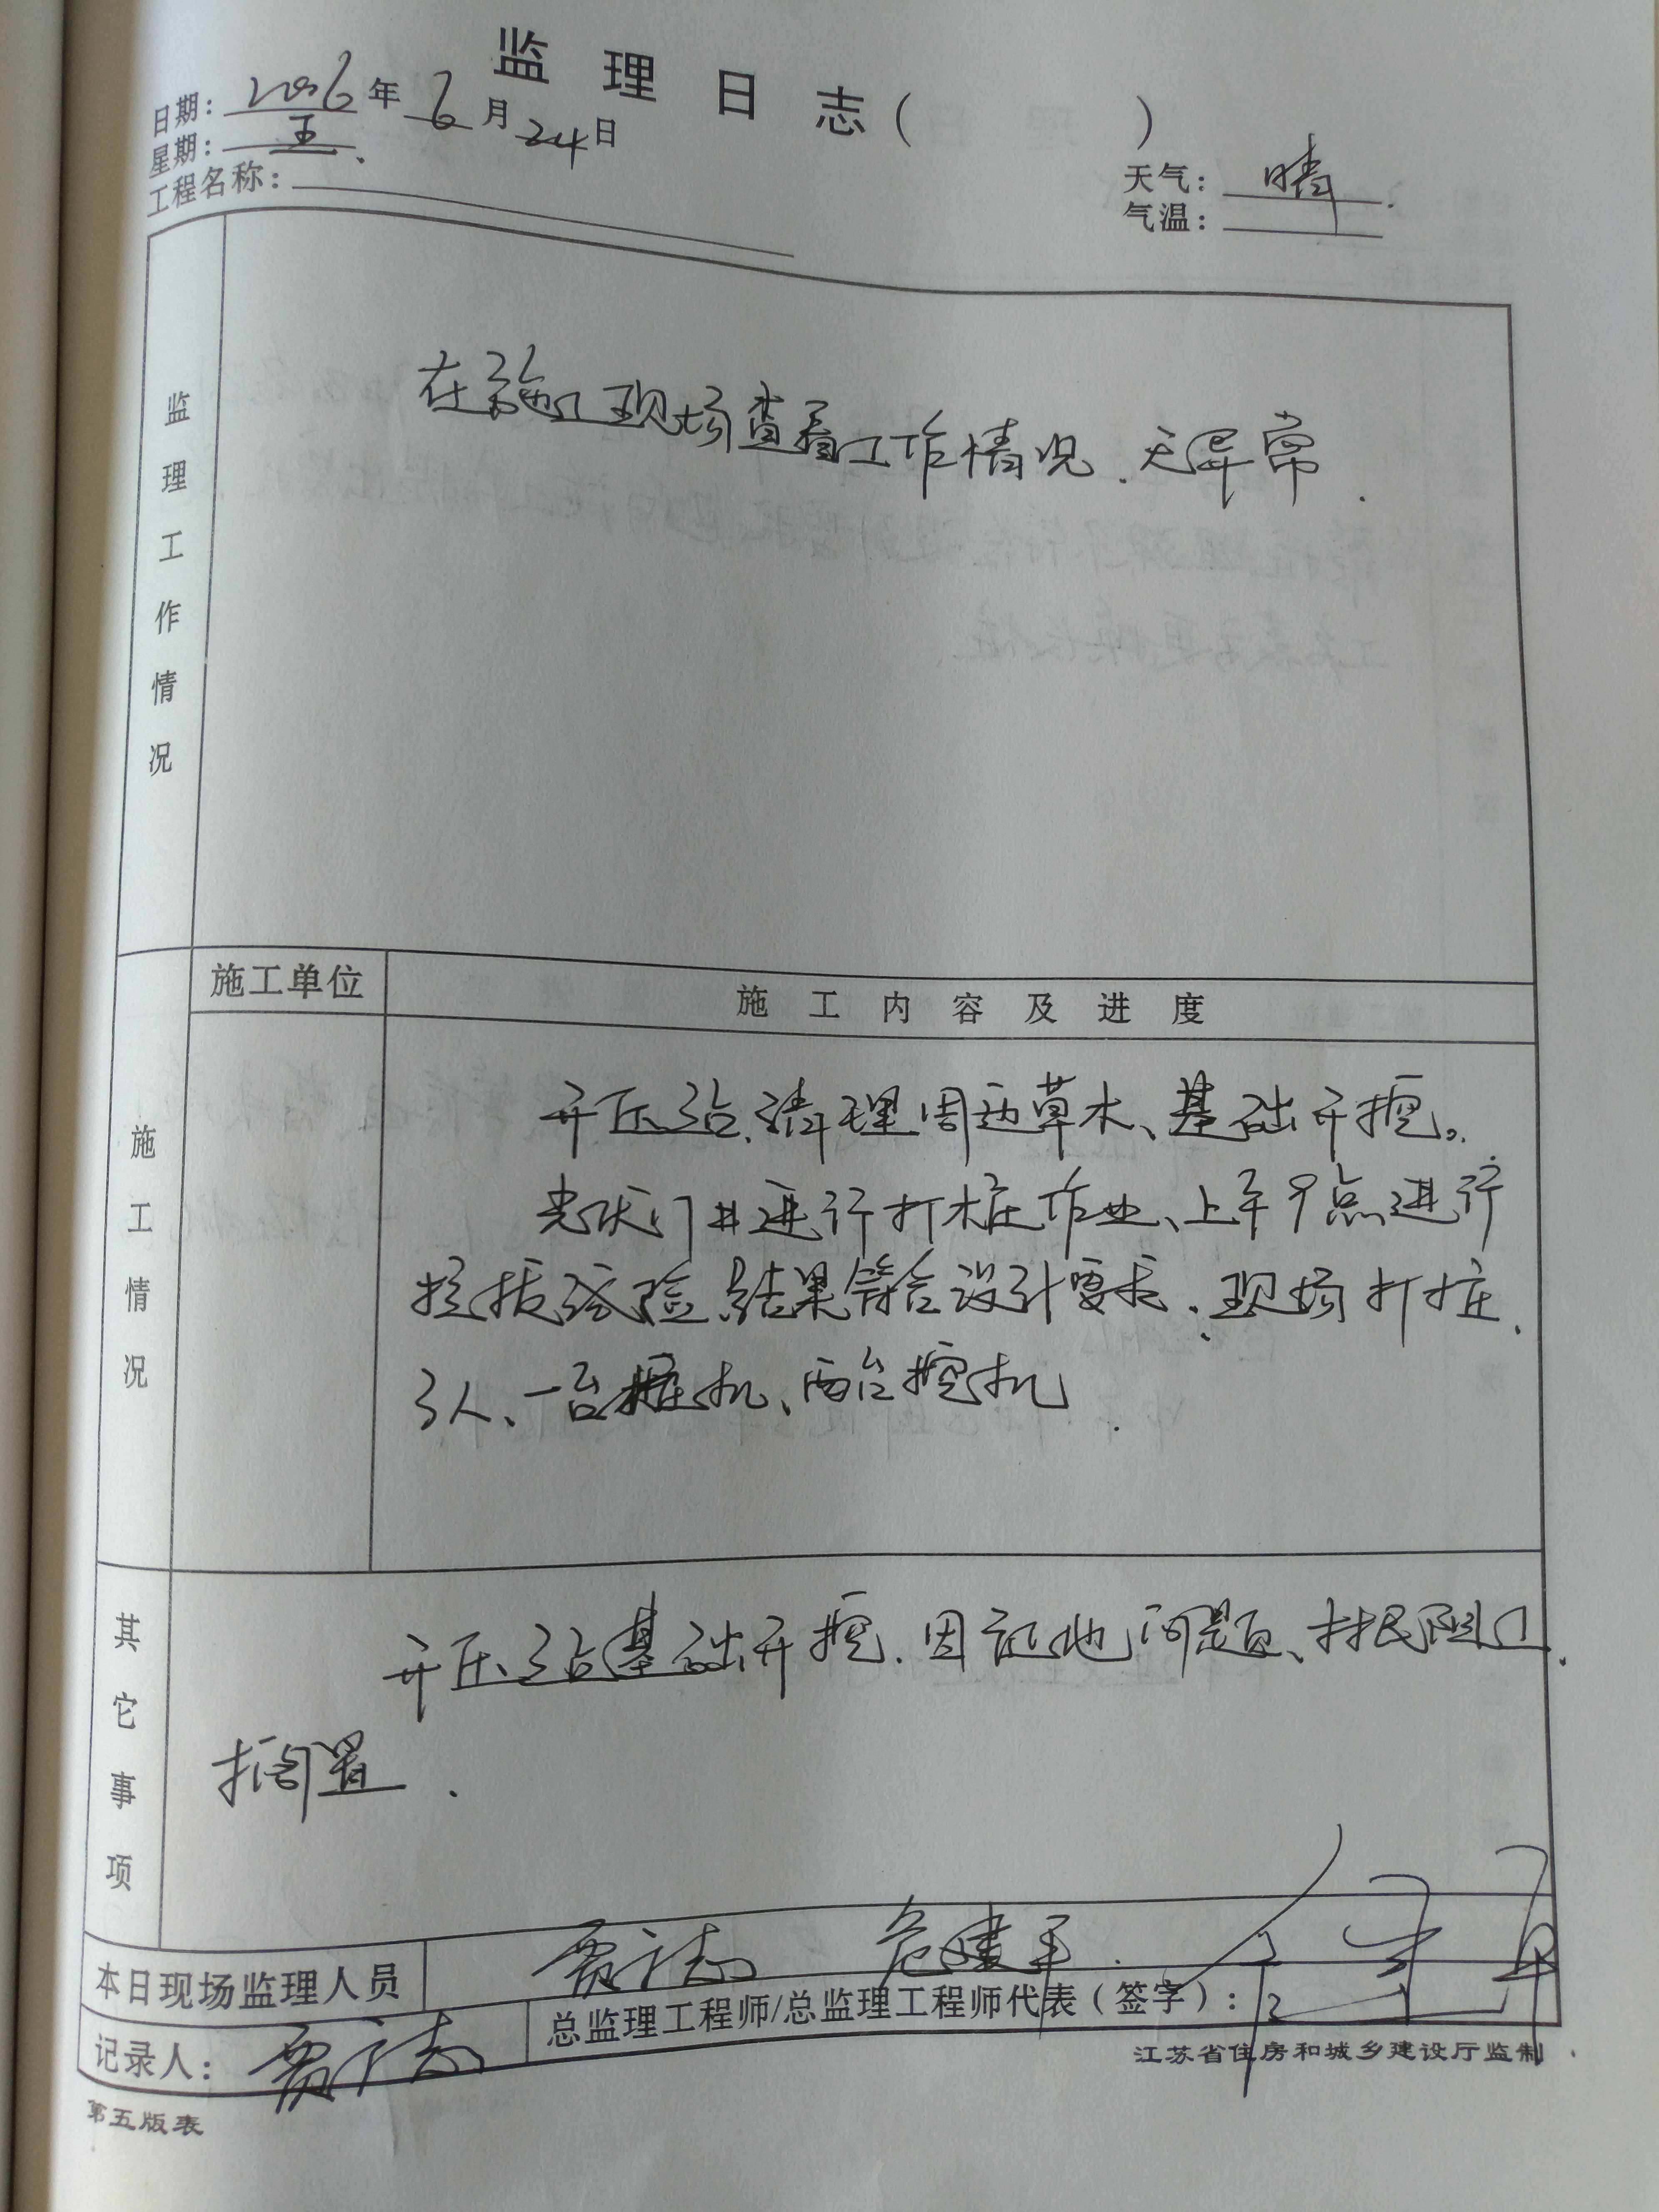 监理日志（ ）
日期：2016年6月24日
星期：五
工程名称：
天气：晴
气温：
监理工作情况
在施工现场查看工作情况.无异常.
施工单位
施工内容及进度
施工情况
开压站.清理周边草木、基础开挖。
光伏门#进行打桩作业、上午9点进行
拉拔试验.结果符合设计要求.现场打桩.
3人、一台桩机、两台挖机.
其它事项
开压站基础开挖.因征地问题、村民阻工.
搁置.
本日现场监理人员
危建平.
总监理工程师/总监理工程师代表（签字）：
记录人：
江苏省住房和城乡建设厅监制
第五版表